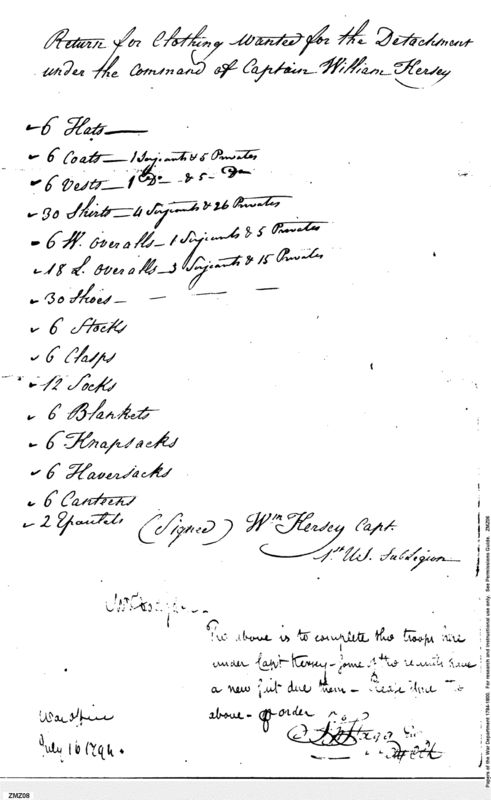 Return for Clothing Wanted for the Detachment
under the command of Captain William Kersey
6 Hats
6 Coats — 1 Serjiants & 5 Privates
6 Vests — 1 Do — & 5 - Do
30 Shirts — 4 Serjiants & 26 Privates
6 W. overalls — 1 Serjiants & 5 Privates
18 L. overalls — 3 Serjiants & 15 Privates
30 Shoes —
6 Stocks
6 Clasps
12 Socks
6 Blankets
6 Knapsacks
6 Haversacks
6 Canteens
2 Epautets
(Signed) Wm Kersey Capt.
1st US. SubLegion
The above is to complete the troops here
under Capt Kersey — some of the recruits have
a new suit due them — Please issue the
above — order
War Office
July 16 1794.
Papers of the War Department 1784-1800. For research and instructional use only. See Permissions Guide. ZMZ08
ZMZ08